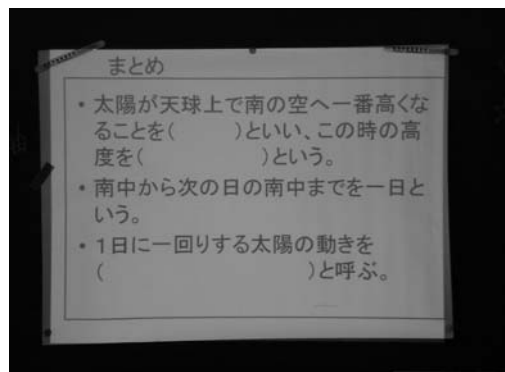 まとめ
・太陽が天球上で南の空へ一番高くな
ることを(　　　)といい、この時の高
度を(　　　　)という。
・南中から次の日の南中までを一日と
いう。
・1日に一回りする太陽の動きを
(　　　　　　　)と呼ぶ。